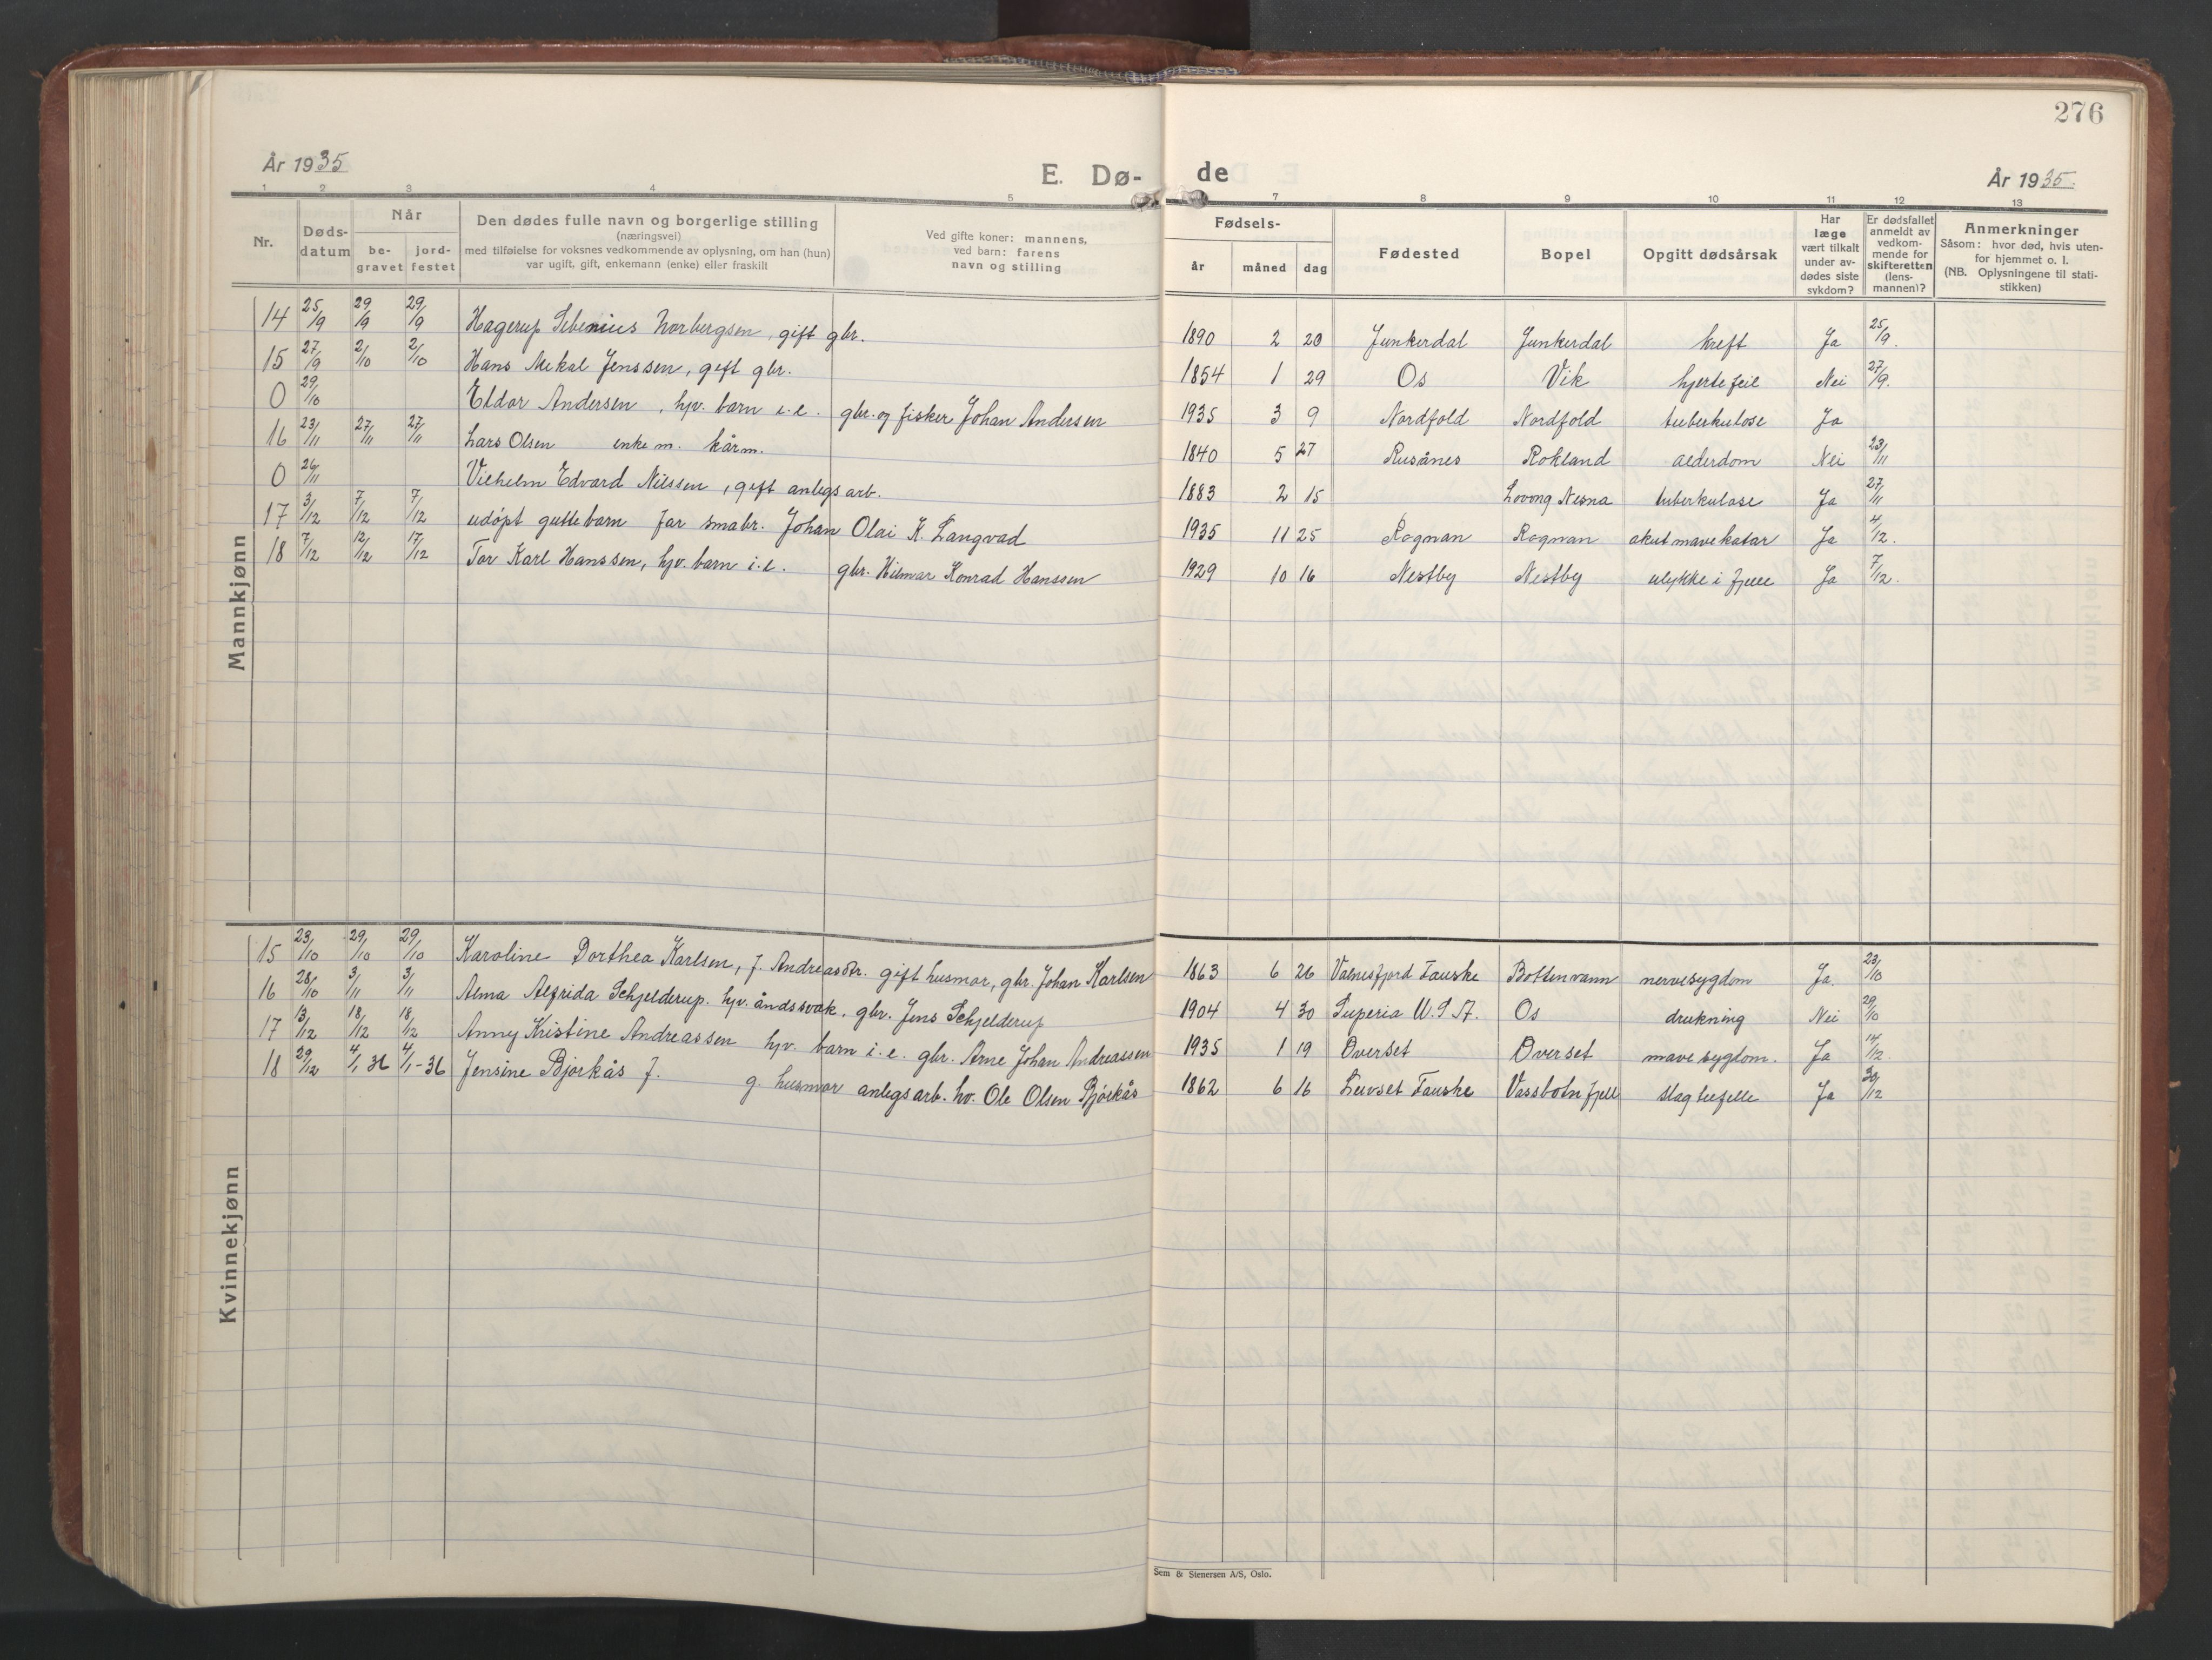 276
År 1935
E. Dø-
de
År 1935.
1 2 3 4 5 7 8 9 10 11 12 13
Nr.
Døds-
datum
Når
be-
gravet
jord-
festet
Den dødes fulle navn og borgerlige stilling
(næringsvei)
med tilføielse for voksnes vedkommende av oplysning, om han (hun)
var ugift, gift, enkemann (enke) eller fraskilt
Ved gifte koner: mannens,
ved barn: farens
navn og stilling
Fødsels-
år måned dag
Fødested
Bopel
Opgitt dødsårsak
Har
læge
vært tilkalt
under av-
dødes siste
sykdom?
Er dødsfallet
anmeldt av
vedkom-
mende for
skifteretten
(lens-
mannen)?
Anmerkninger
Såsom: hvor død, hvis uten-
for hjemmet o. l.
(NB. Oplysningene til stati-
stikken)
Mannkjønn
14 25/9 29/9 29/9 Hagerup Norbergsen, gift gbr. 1890 2 20 Junkerdal Junkerdal kreft Ja 25/9.
15 27/9 2/10 2/10 Hans Mikal Jenssen, gift gbr. 1854 1 29 Os Vik hjertefeil Nei 27/9.
0 29/10 Eldar Andersen, hjv. barn i.e. gbr. og fisker Johan Andersen 1935 3 9 Nordfold Nordfold tuberkulose Ja
16 23/11 27/11 27/11 Lars Olsen enkem. kårm. 1840 5 27 Rusånes Rokland alderdom Nei 23/11
0 26/11 Vilhelm Edvard Nilssen, gift anlegsarb. 1883 2 15 Lovong Nesna tuberkulose Ja 27/11
17 3/12 7/12 7/12 udøpt guttebarn far smabr. Johan Olai K. Langvad 1935 11 25 Rognan Rognan akut mavekatar Ja 4/12.
18 7/12 12/12 17/12 Tor Karl Hanssen, hjv. barn i.e. gbr. Hilmar Konrad Hanssen 1929 10 16 Nestby Nestby ulykke i fjell Ja 7/12.
Kvinnekjønn
15 23/10 29/10 29/10 Karoline Dorthea Karlsen, f. Andreasdtr. gift husmor, gbr. Johan Karlsen 1863 6 26 Valnesfjord Fauske Bottenvann nervesygdom Ja. 23/10
16 28/10 3/11 3/11 Alma Alfrida Schjelderup. hjv. åndssvak. gbr. Jens Schjelderup 1904 4 30 Superia U.S.A. Os drukning Nei 29/10
17 13/12 18/12 18/12 Anny Kristine Andreassen hjv. barn i.e. gbr. Arne Johan Andreassen 1935 1 19 Øverset Øverset mavesygdom. Ja 14/12.
18 29/12 4/1 36 4/1-36 Jensine Bjørkås f. g. husmor anlegsarb. hv. Ole Olsen Bjørkås 1862 6 16 Leivset Fauske Vassbotnfjell slagtilfelle Ja 30/12
Sem & Stenersen A/S, Oslo.